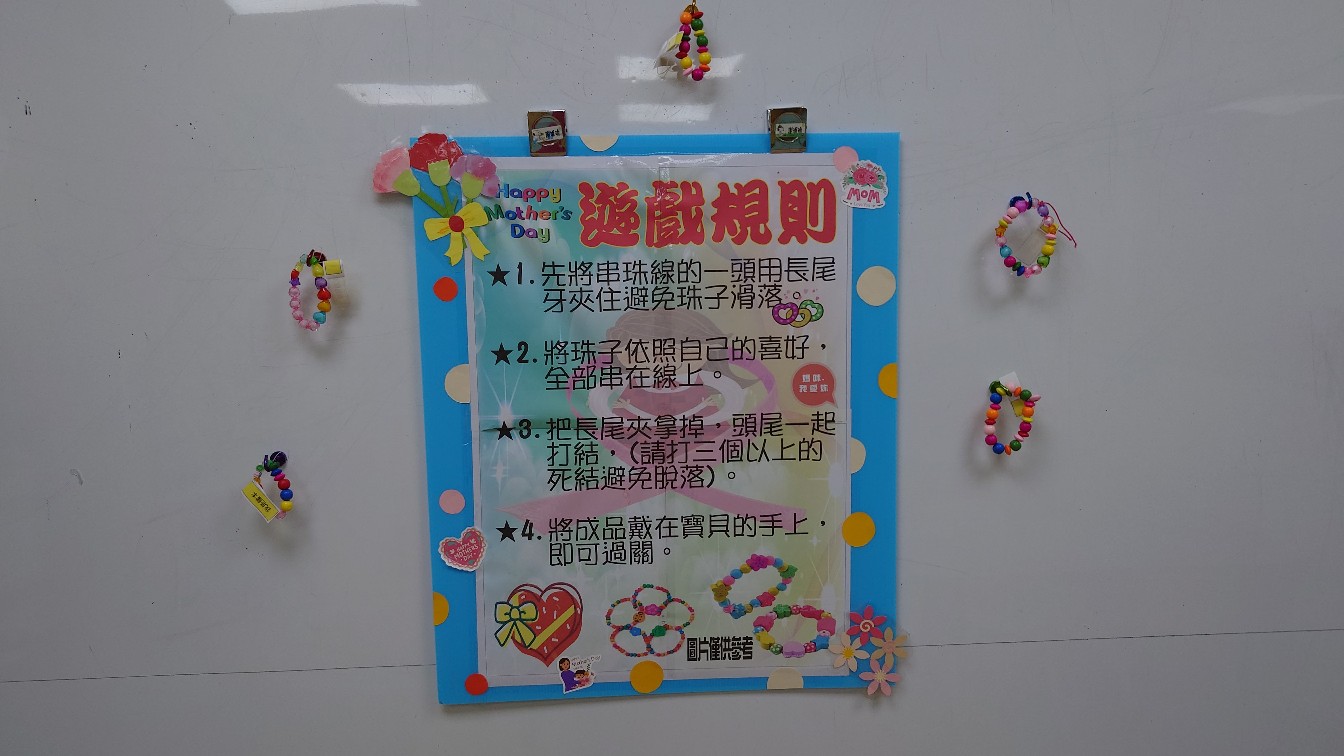 Happy
Mother's
Day
遊戲規則
MOM
★1.先將串珠線的一頭用長尾
牙夾住避免珠子滑落。
★2.將珠子依照自己的喜好，
全部串在線上。
媽咪.
我愛妳
★3.把長尾夾拿掉，頭尾一起
打結，(請打三個以上的
死結避免脫落)。
★4.將成品戴在寶貝的手上，
即可過關。
HAPPY
MOTHER'S
DAY
圖片僅供參考